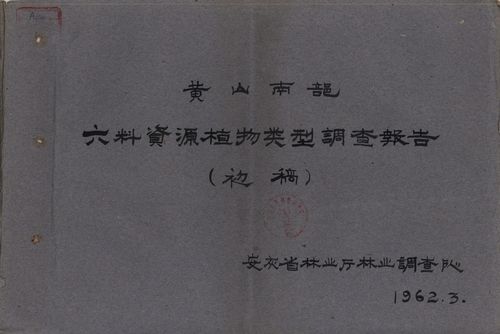 黄山南部
六料資源植物类型調查報告
(初稿)
安灰省林业厅林业調查队
1962.3.